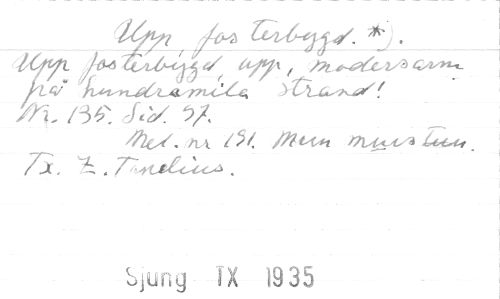 Upp fosterbygd. *).
Upp fosterbygd, upp, modersarm
på hundramila strand!
Nr. 135. Sid. 97.
Mel. nr 191. Mun
Tx. Z.
Sjung TX 1935